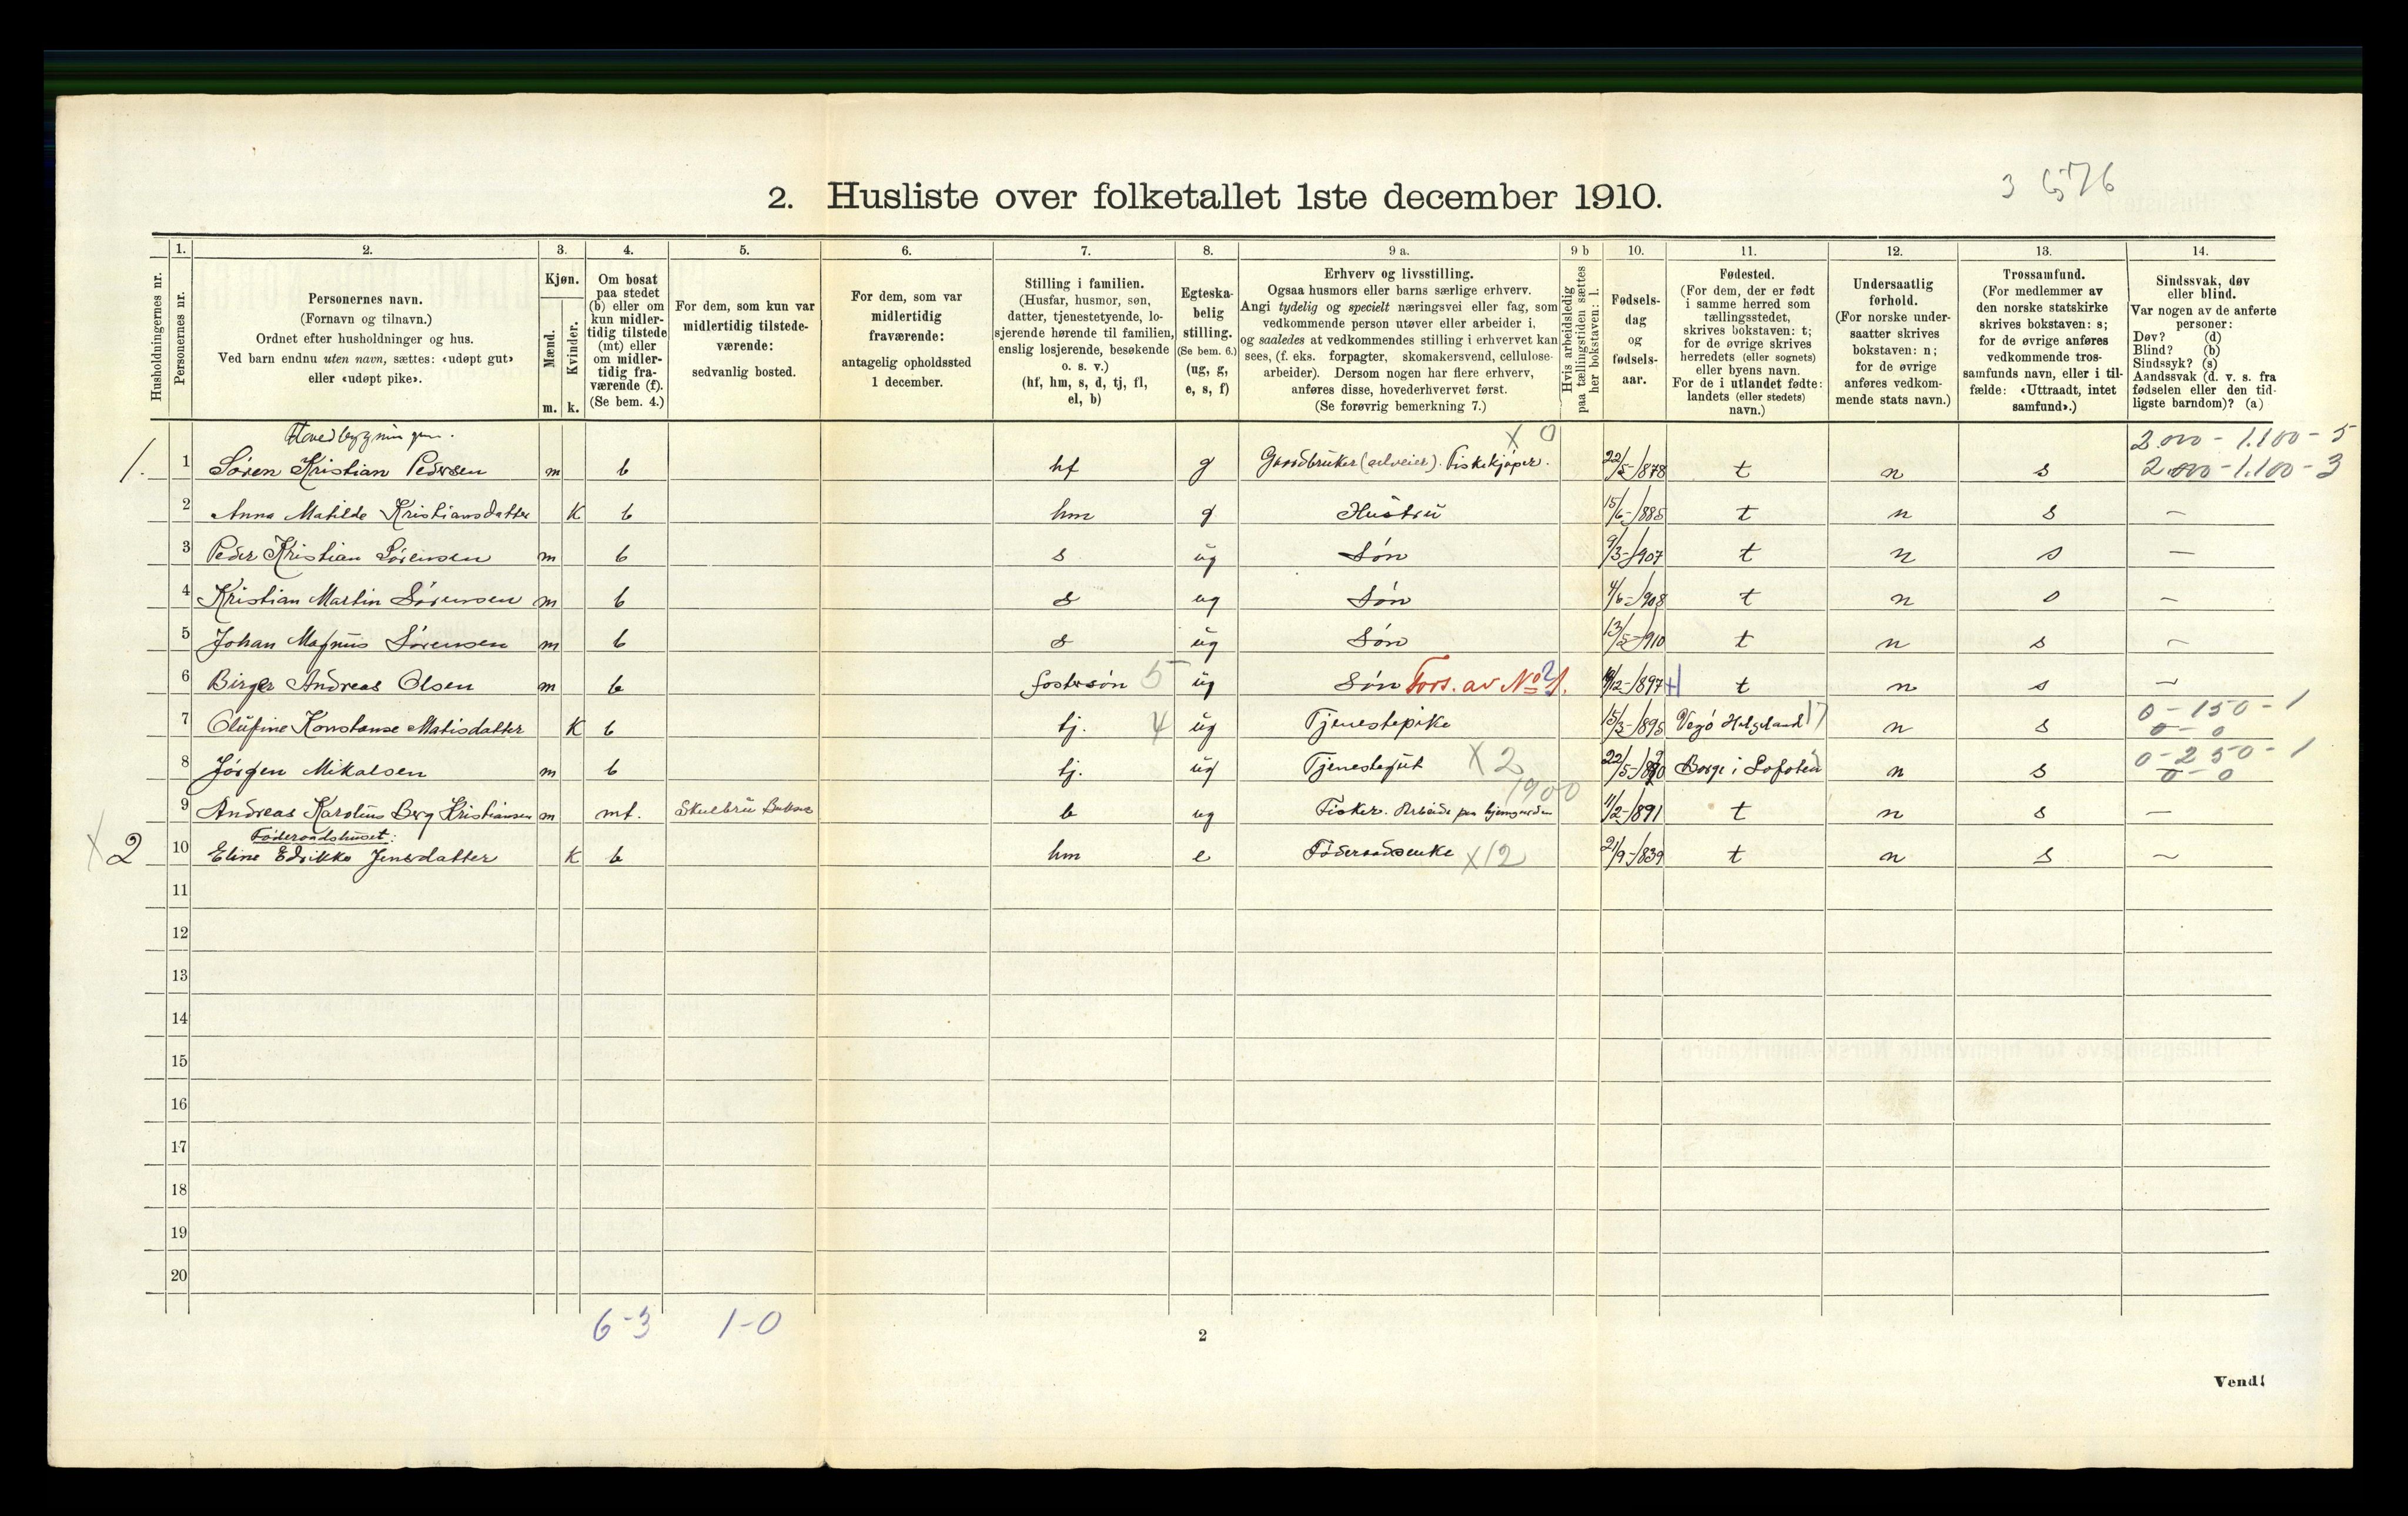 3 576
2. Husliste over folketallet 1ste december 1910.
Husholdningernes nr.
1.
Personernes nr.
2.
Personernes navn.
(Fornavn og tilnavn.)
Ordnet efter husholdninger og hus.
Ved barn endnu uten navn, sættes: «udøpt gut»
eller «udøpt pike».
3.
Kjøn.
Mænd.
Kvinder.
m. k.
4.
Om bosat
paa stedet
(b) eller om
kun midler-
tidig tilstede
(mt) eller
om midler-
tidig fra-
værende (f).
(Se bem. 4.)
5.
For dem, som kun var
midlertidig tilstede-
værende:
sedvanlig bosted.
6.
For dem, som var
midlertidig
fraværende:
antagelig opholdssted
1 december.
7.
Stilling i familien.
(Husfar, husmor, søn,
datter, tjenestetyende, lo-
sjerende hørende til familien,
enslig losjerende, besøkende
o. s. v.)
(hf, hm, s, d, tj, fl,
el, b)
8.
Egteska-
belig
stilling.
(Se bem. 6.)
(ug, g,
e, s, f)
9 a.
Erhverv og livsstilling.
Ogsaa husmors eller barns særlige erhverv.
Angi tydelig og specielt næringsvei eller fag, som
vedkommende person utøver eller arbeider i,
og saaledes at vedkommendes stilling i erhvervet kan
sees, (f. eks. forpagter, skomakersvend, cellulose-
arbeider). Dersom nogen har flere erhverv,
anføres disse, hovederhvervet først.
(Se forøvrig bemerkning 7.)
9 b
Hvis arbeidsledig
paa tællingstiden sættes
her bokstaven: l.
10.
Fødsels-
dag
og
fødsels-
aar.
11.
Fødested.
(For dem, der er født
i samme herred som
tællingsstedet,
skrives bokstaven: t;
for de øvrige skrives
herredets (eller sognets)
eller byens navn.
For de i utlandet fødte:
landets (eller stedets)
navn.)
12.
Undersaatlig
forhold.
(For norske under-
saatter skrives
bokstaven: n;
for de øvrige
anføres vedkom-
mende stats navn.)
13.
Trossamfund.
(For medlemmer av
den norske statskirke
skrives bokstaven: s;
for de øvrige anføres
vedkommende tros-
samfunds navn, eller i til-
fælde: «Uttraadt, intet
samfund».)
14.
Sindssvak, døv
eller blind.
Var nogen av de anførte
personer:
Døv? (d)
Blind? (b)
Sindssyk? (s)
Aandssvak (d. v. s. fra
fødselen eller den tid-
ligste barndom)? (a)
Hovedbygningen. X 0 2000 - 1.100 - 5
1. 1 Søren Kristian Pedersen m b hf g Gaardbruker (selveier). Fiskekjøper. 22/5-1878 t n s 2000 - 1.100 - 3
2 Anna Matilde Kristiansdatter K b hm g Hustru 15/6-1885 t n s —
3 Peder Kristian Sørensen m b s ug Søn 9/3-1907 t n s —
4 Kristian Martin Sørensen m b s ug Søn 4/6-1908 t n s —
5 Johan Magnus Sørensen m b s ug Søn 13/5-1910 t n s —
6 Birger Andreas Olsen m b fostersøn 5 ug Søn Fors. av No 1. /12-1897 t n s —
7 Olufine Konstanse Matisdatter K b tj. 4 ug Tjenestepike 15/3-1895 Vegø Helgeland 17 n s 0 - 150 - 1
0 - 0
8 Jørgen Mikalsen m b tj. ug Tjenestegut X 2 22/5- Borge i Lofoten n s 0 - 250 - 1
0 - 0
1900
9 Andreas Karolius Berg Kristiansen m mt. Skulbru b ug Fisker. Arbeide paa hjemgaarden 11/2-1891 t n s —
Føderaadshuset:
X 2 10 Eline Edrikke Jensdatter K b hm e Føderaadsenke X12 21/9-1839 t n s —
11
12
13
14
15
16
17
18
19
20
6-3 1-0
2
Vend!